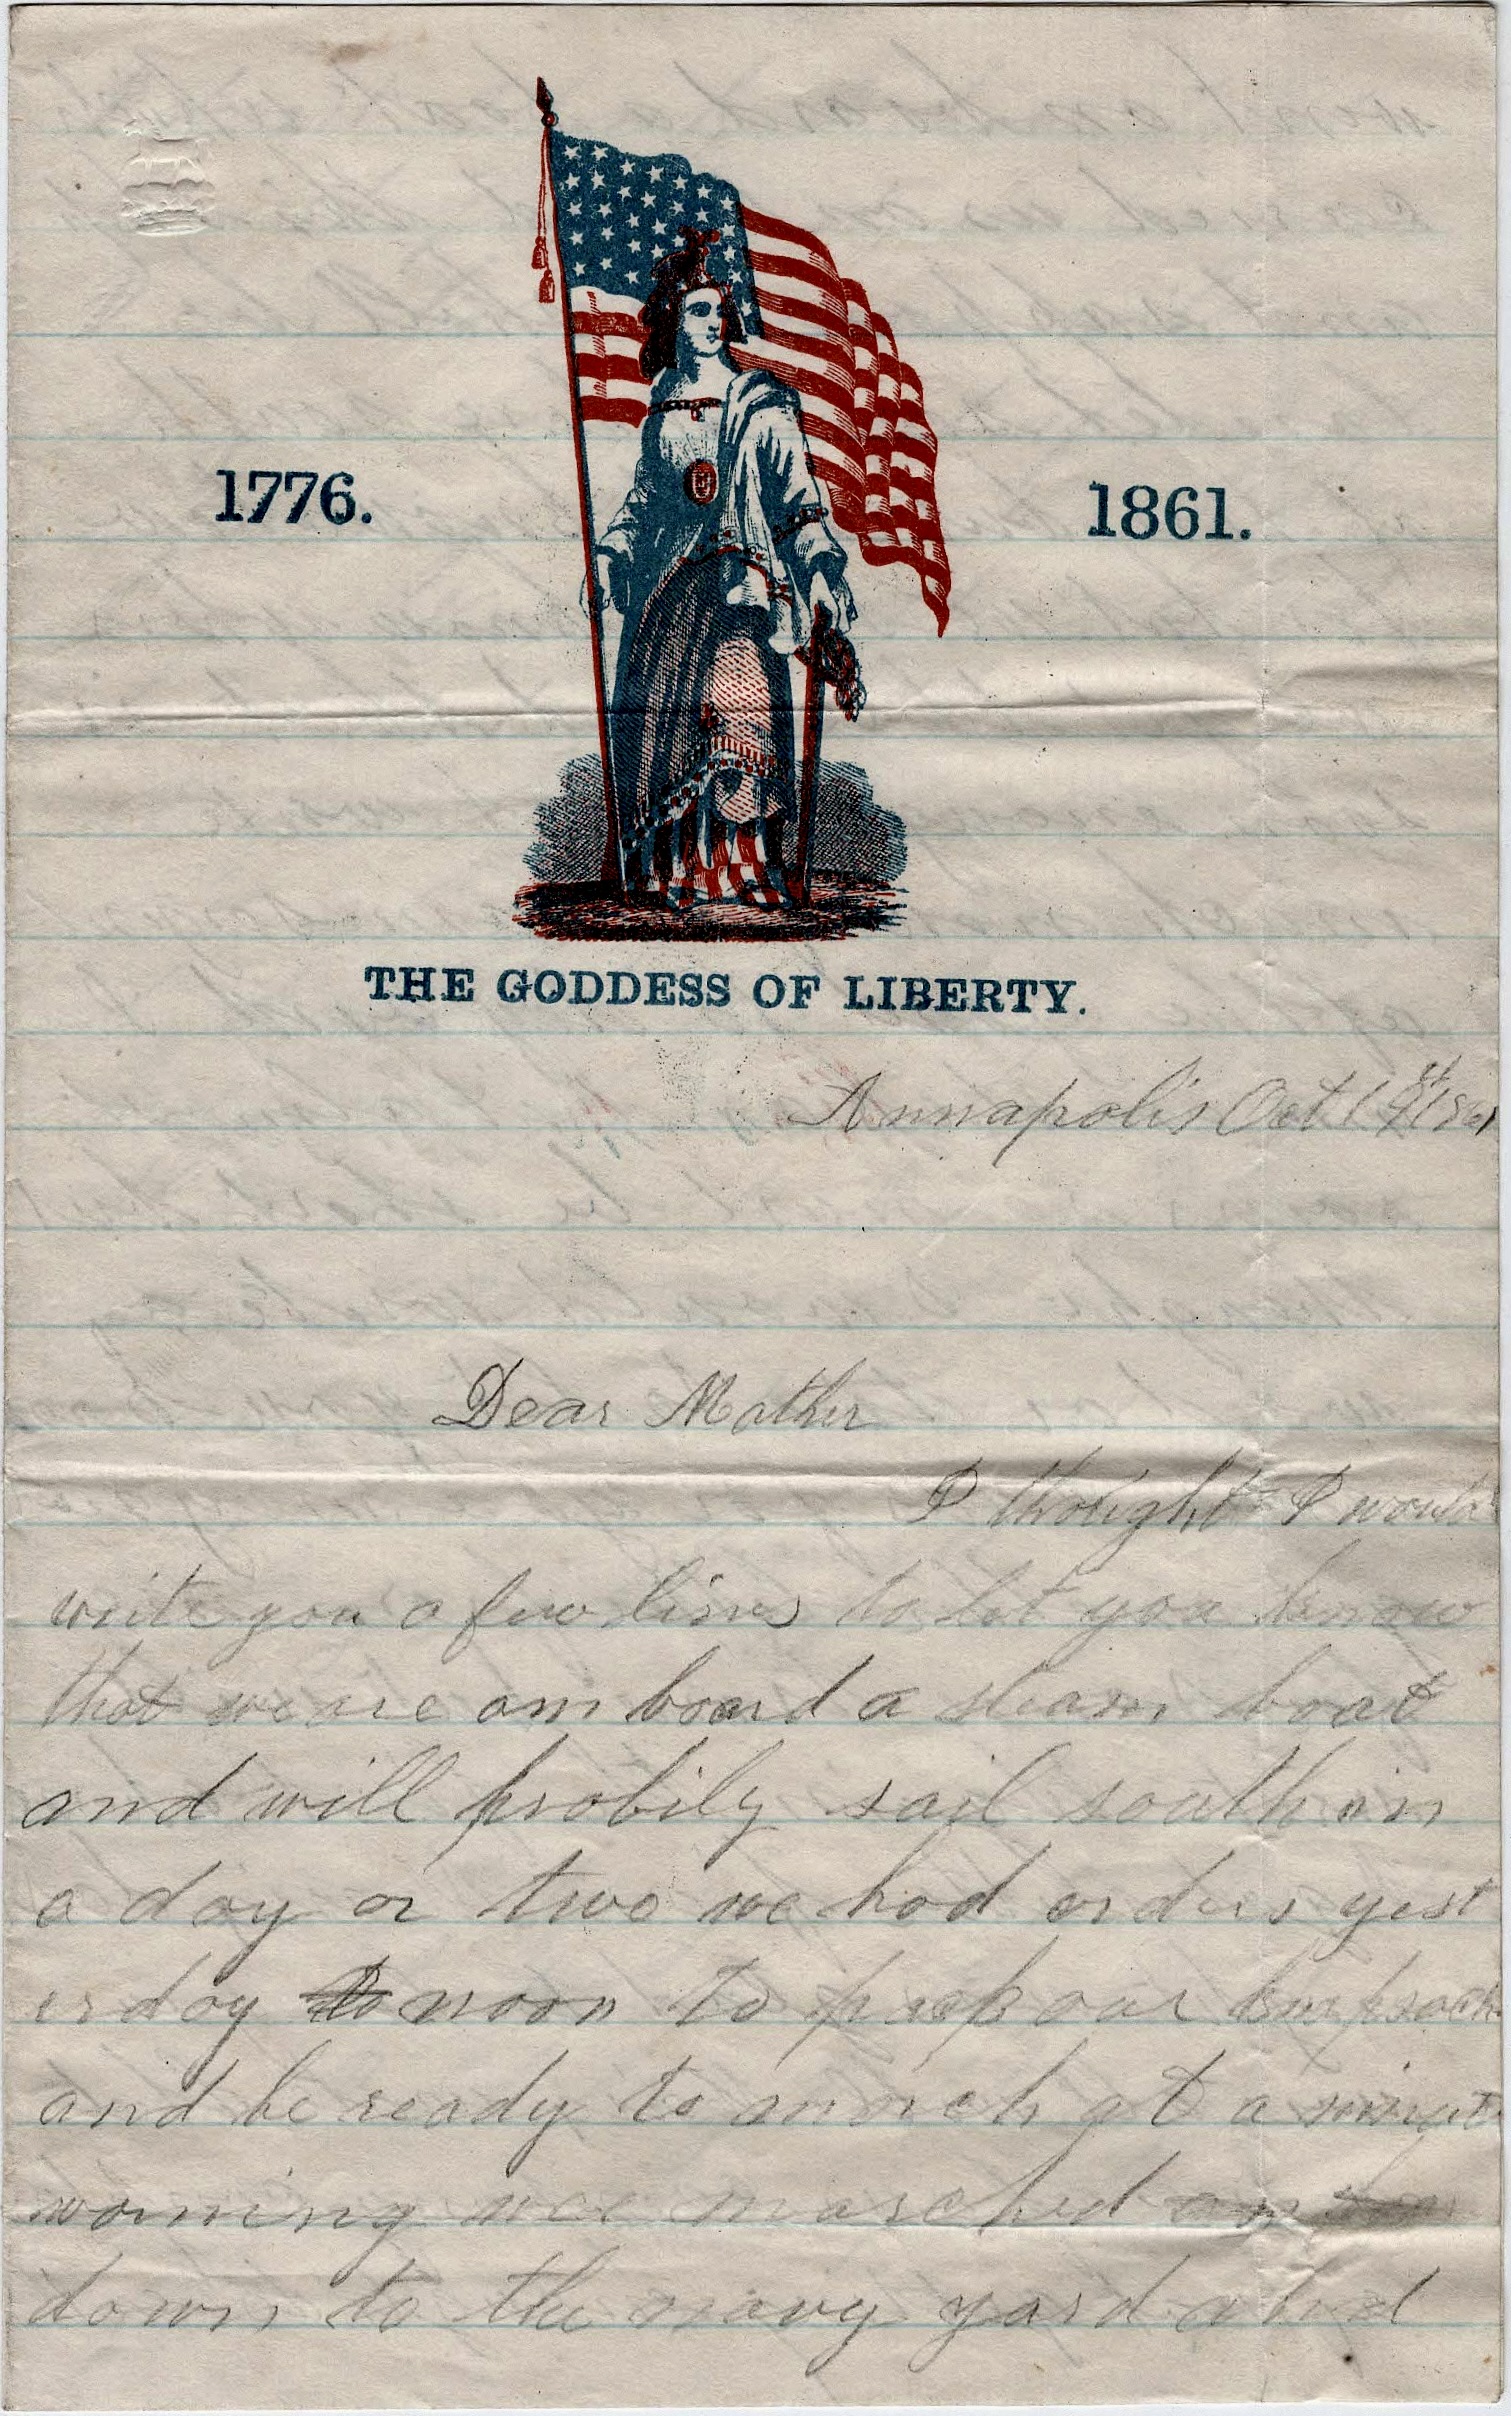 1776.
1861.
THE GODDESS OF LIBERTY.
Annapolis Oct 1861
Dear Mother
I thought I would
write you a few lines to let you know
that we are om board a steam boat
and will probily sail south in
a day or two we had orders yest
erday noon to our
and be ready to march at a minut
worning wee marched
down to the navy yard and